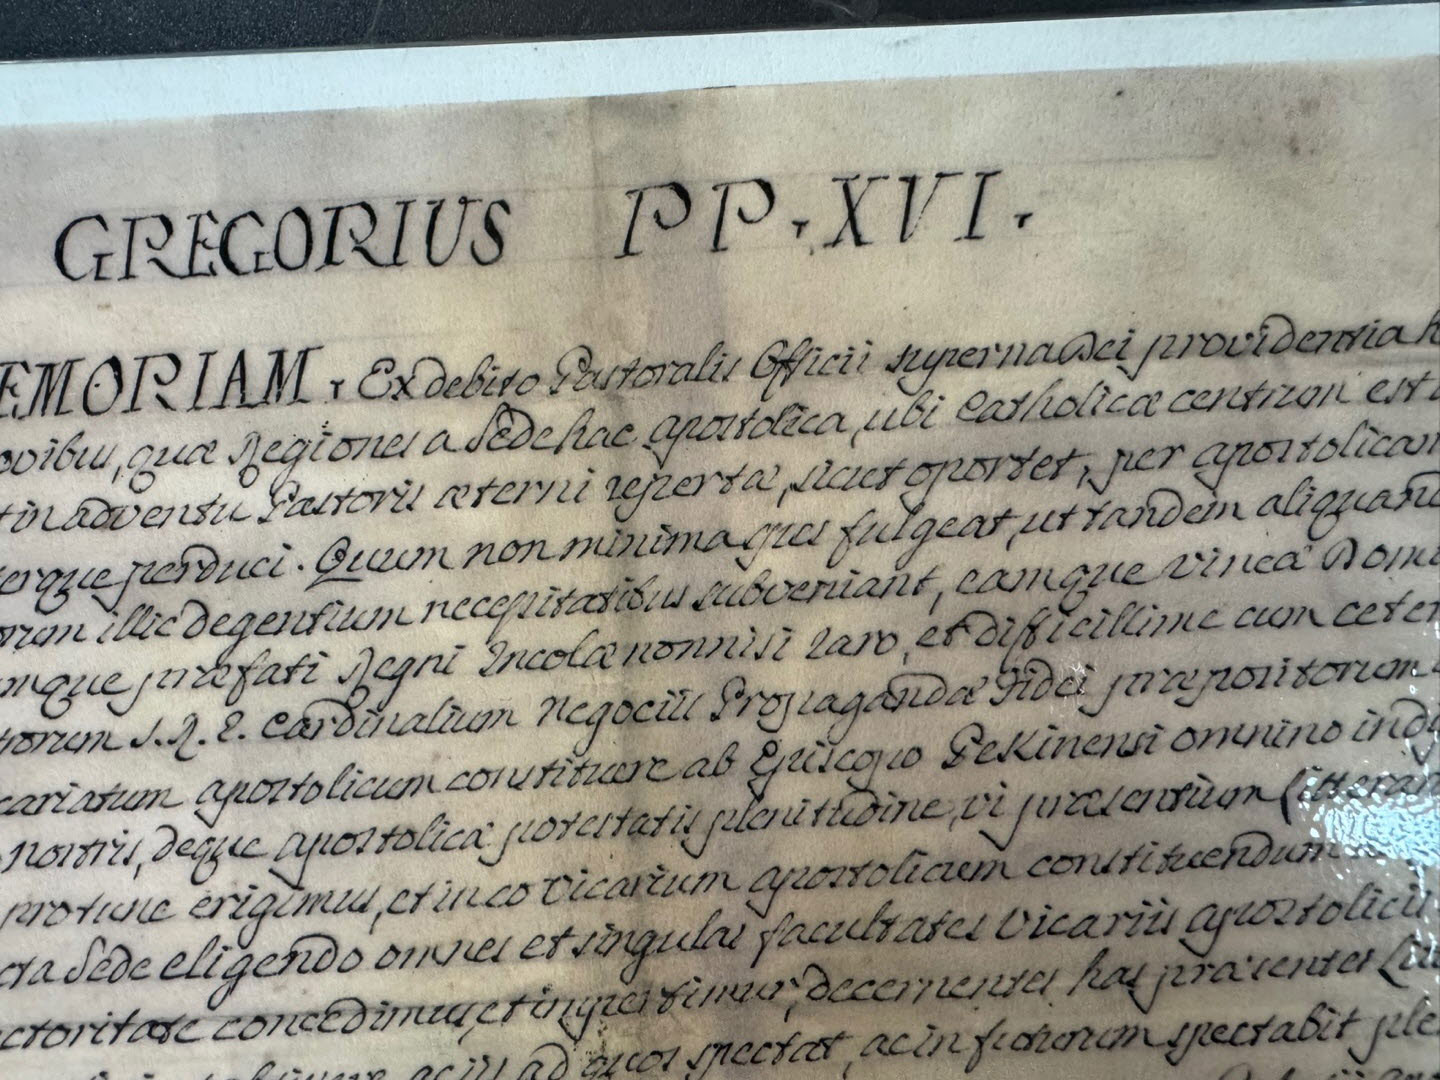 GREGORIUS PP. XVI.
EMORIAM. Ex debito Pastoralis Officii superna Dei providentia
ovibus, quæ Regiones a Sede hac apostolica, ubi Catholicæ centrum est
in adventu Pastoris æterni repertæ, sicut oportet, per apostolicam
perduci. Quum non minima spes fulgeat, ut tandem aliquand
illic degentium necessitatibus subveniant, eamque vinea Domi
mque præfati Regni Incolæ nonnisi raro, et difficillime cum ceter
S. R. E. Cardinalium Negociis Propagandæ Fidei præpositorum
cariatum apostolicum constituere ab Episcopo Pekinensi omnino ind
nostris, deque apostolicæ potestatis plenitudine, vi præsentium Litteraru
pro tunc erigimus, et in eo Vicarium apostolicum constituendum
cta Sede eligendo omnes et singulas facultates Vicariis apostolicis
ctoritate concedimus, et impertimur, decernentes has præsentes Litt
ac iis ad quos spectat, ac in futurum spectabit ple